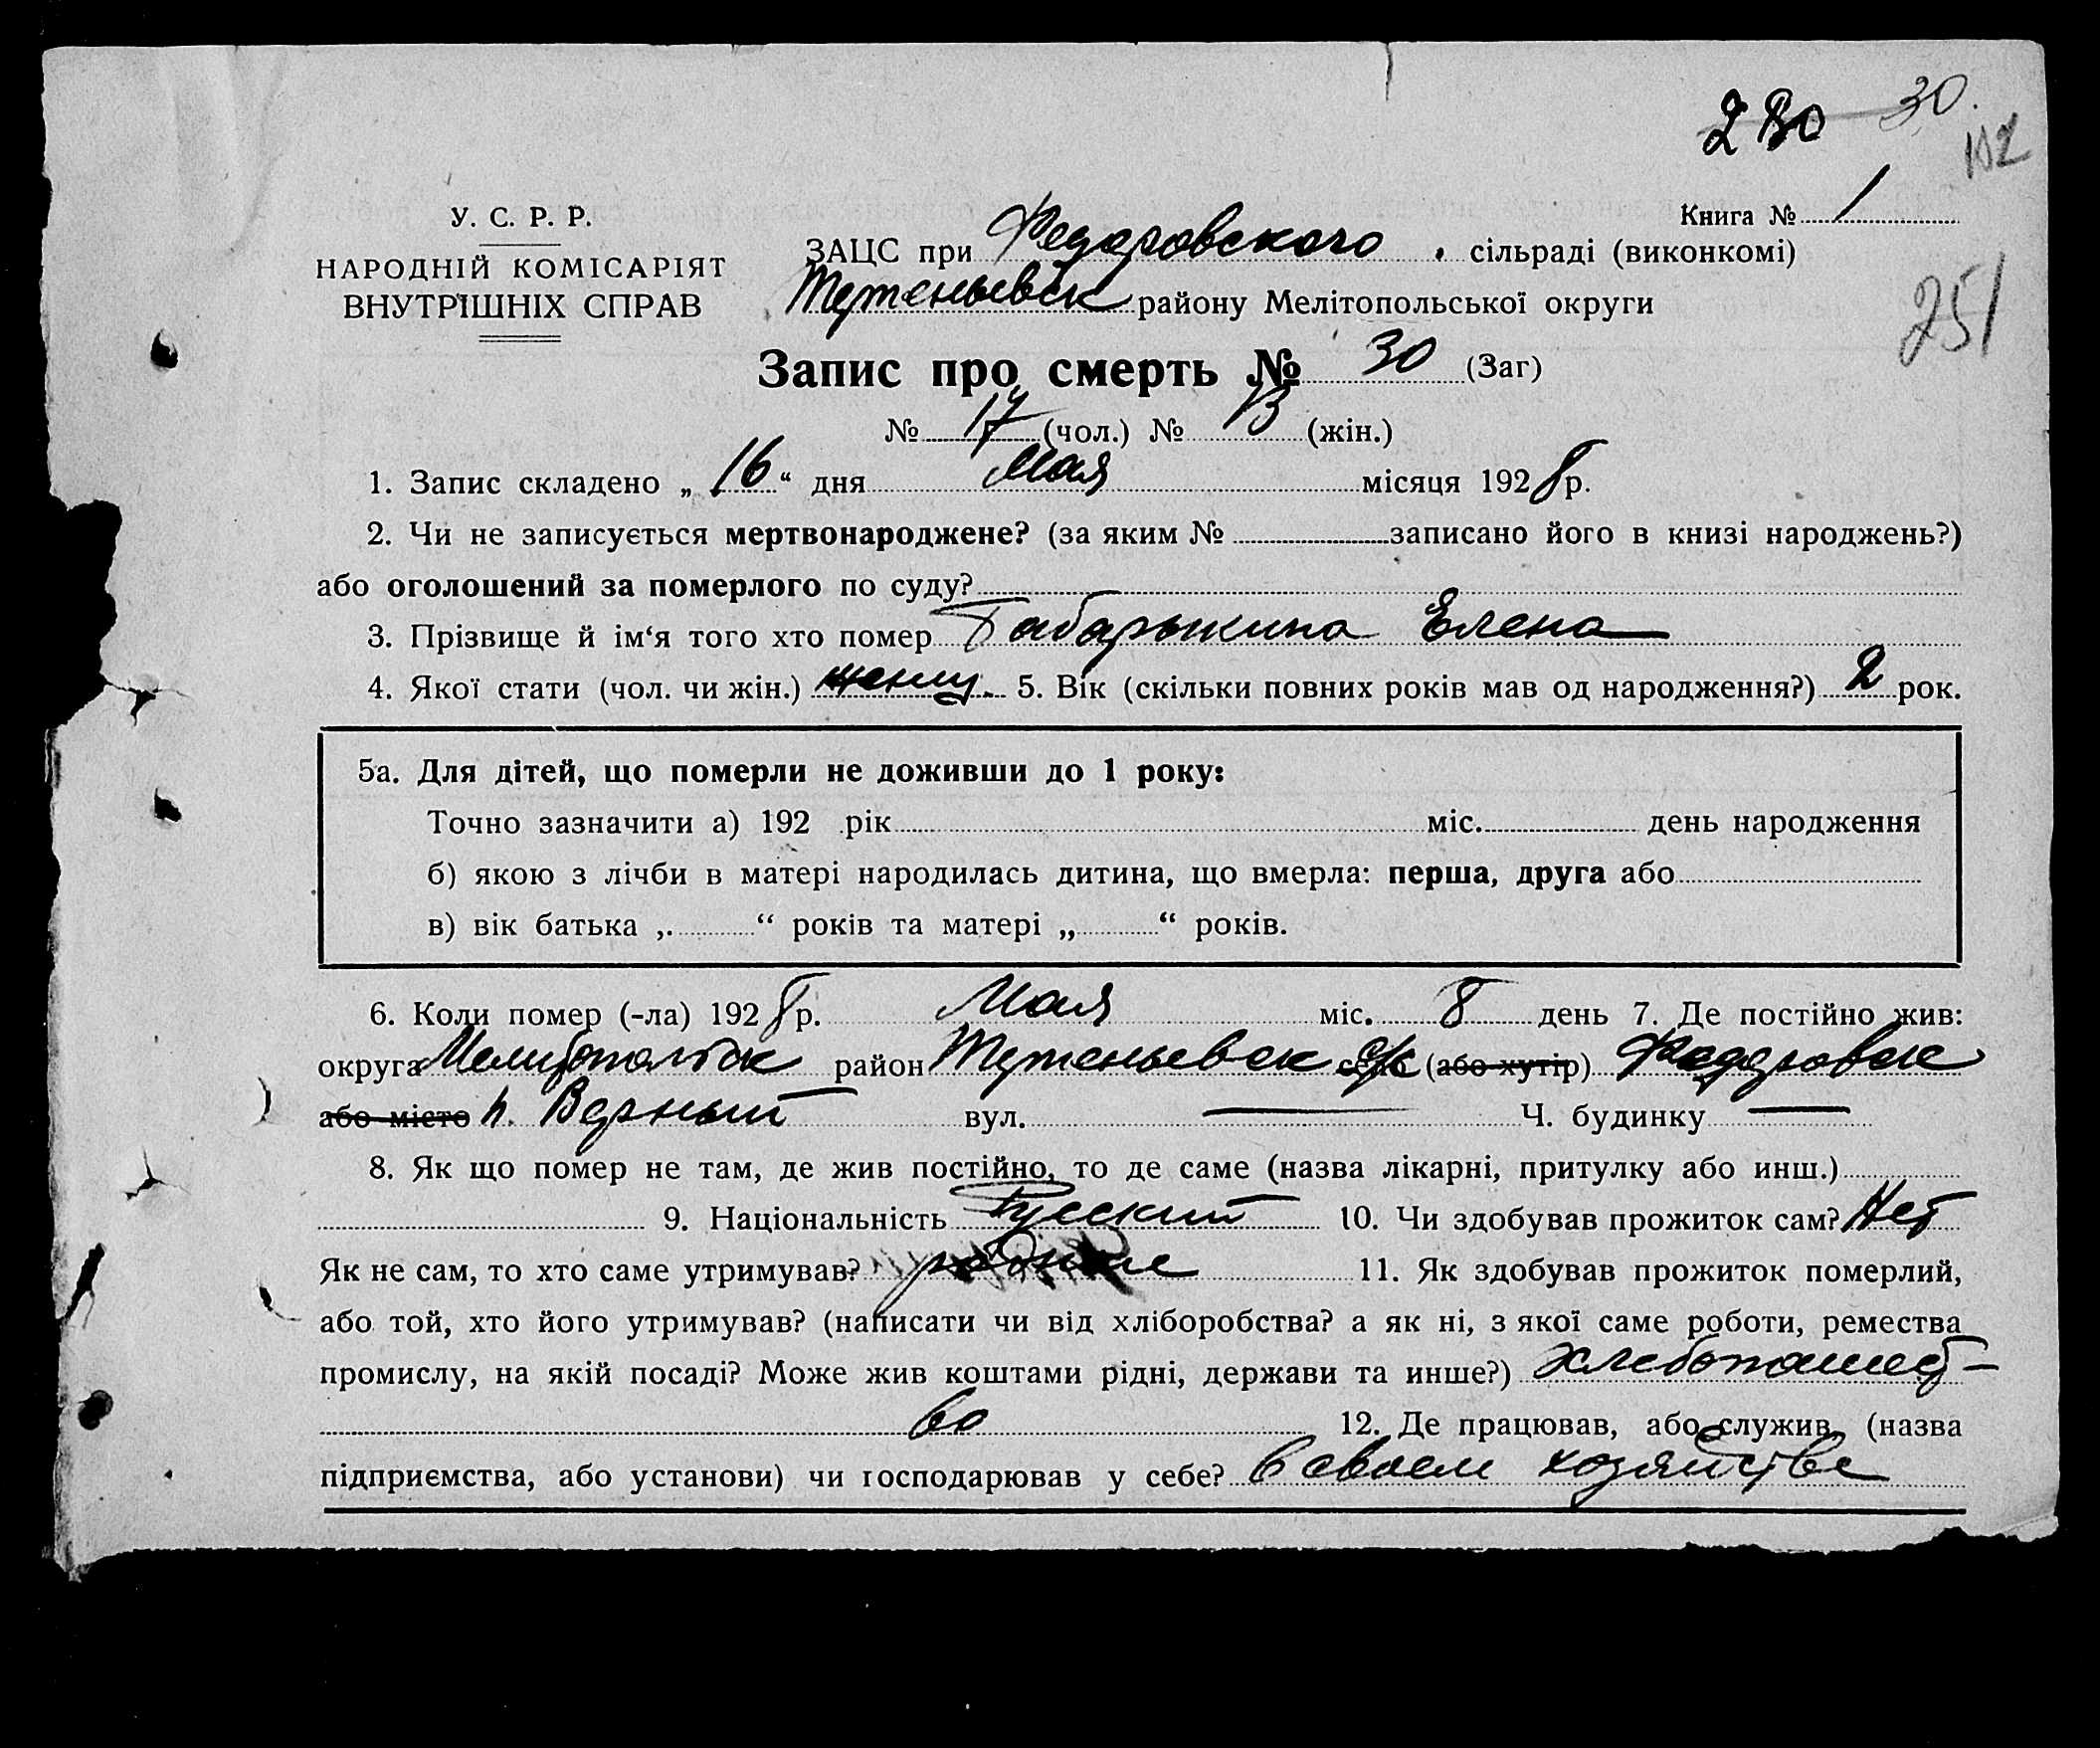 280 30.
102
У. С. Р. Р.
Книга № 1
НАРОДНІЙ КОМІСАРІЯТ
ВНУТРІШНІХ СПРАВ
ЗАЦС при Федоровского сільраді (виконкомі)
району Мелітопольської округи
251
Запис про смерть № 30 (Заг)
№ 17 (чол.) № 13 (жін.)
1. Запис складено „ 16 “ дня Мая місяця 1928 р.
2. Чи не записується мертвонароджене? (за яким № записано його в книзі народжень?)
або оголошений за померлого по суду?
3. Прізвище й ім‘я того хто помер Табарыкина Елена
4. Якої стати (чол. чи жін.) женщ. 5. Вік (скільки повних років мав од народження?) 2 рок.
5а. Для дітей, що померли не доживши до 1 року:
Точно зазначити а) 192 рік міс. день народження
б) якою з лічби в матері народилась дитина, що вмерла: перша, друга або
в) вік батька „ “ років та матері „ “ років.
6. Коли помер (-ла) 1928 р. Мая міс. 8 день 7. Де постійно жив:
округа Мелитопольск район село с/с (або хутір) Федоровск
або місто п. Верный вул. — Ч. будинку —
8. Як що помер не там, де жив постійно, то де саме (назва лікарні, притулку або инш.)
9. Національність Русский 10. Чи здобував прожиток сам? Нет
Як не сам, то хто саме утримував? 11. Як здобував прожиток померлий,
або той, хто його утримував? (написати чи від хліборобства? а як ні, з якої саме роботи, ремества
промислу, на якій посаді? Може жив коштами рідні, держави та инше?) хлебопашест-
во 12. Де працював, або служив, (назва
підприємства, або установи) чи господарював у себе? в своем хозяйстве